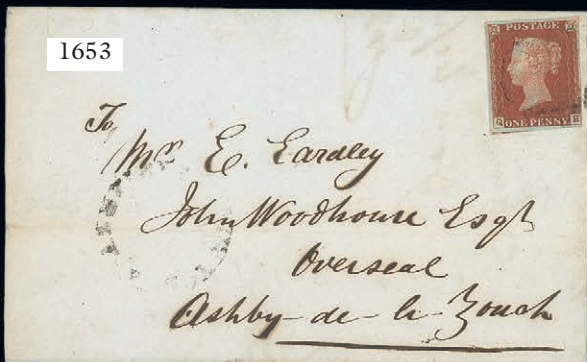 1653
POSTAGE
ONE PENNY
To
Mrs E. Eardley
John Woodhouse Esqr
Overseal
Ashby-de-la-Zouch